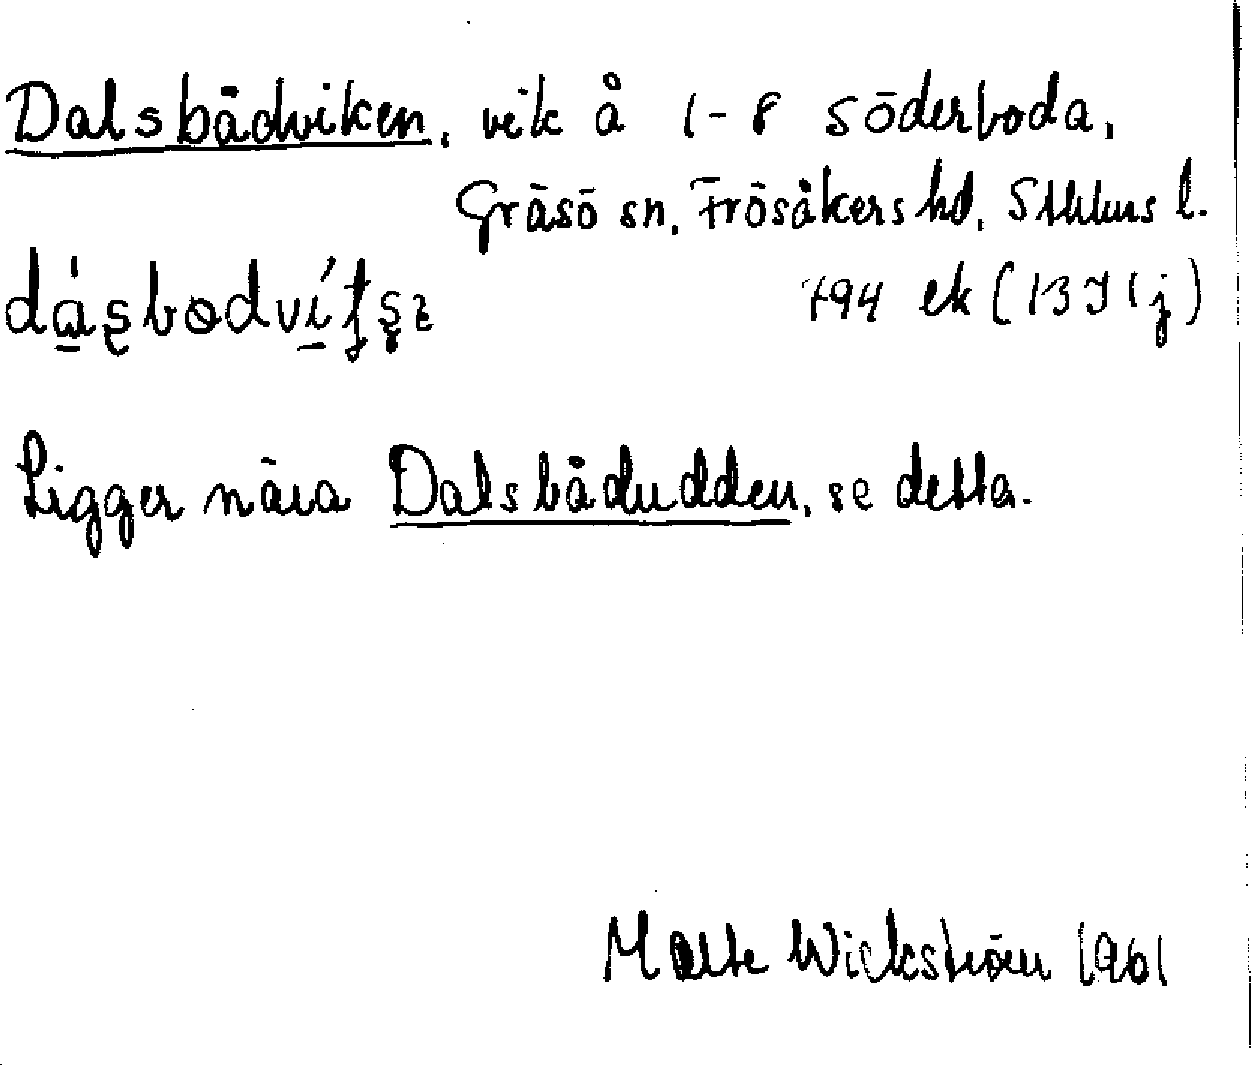 Dalsbådviken, vik å 1-8 Söderboda,
Gräsö sn, Frösåkers hd, Sthlms l.
794 ek (13I1j)
Ligger nära Dalsbådudden, se detta.
Malte Wickström 1961